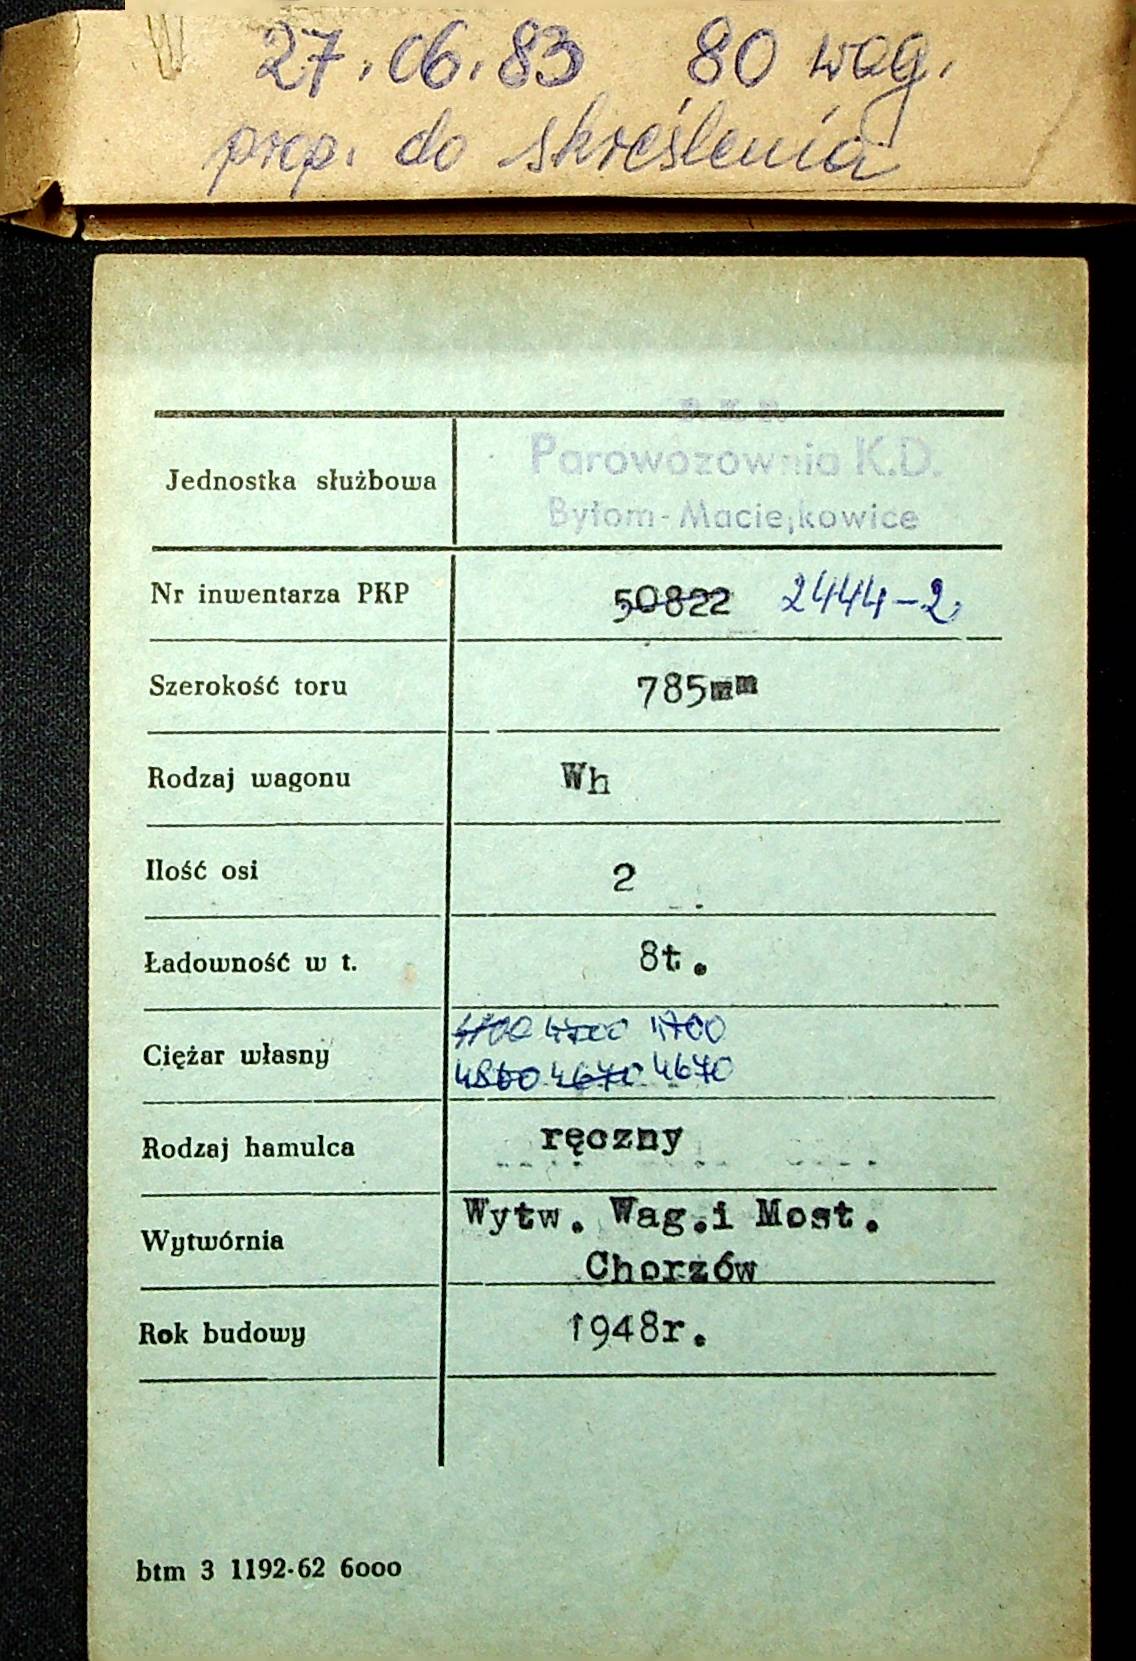 27.06.83 80 wag.
prop. do skreślenia
P.K.P.
Parowozownia K.D.
Bytom-Maciejkowice
Jednostka służbowa
Nr inwentarza PKP 50822 2444-2
Szerokość toru 785mm
Rodzaj wagonu Wh
Ilość osi 2
Ładowność w t. 8t.
4700 4700 4700
Ciężar własny
4850 4670 4670
Rodzaj hamulca ręczny
Wytw. Wag.i Most.
Wytwórnia
Chorzów
Rok budowy 1948r.
btm 3 1192-62 6000